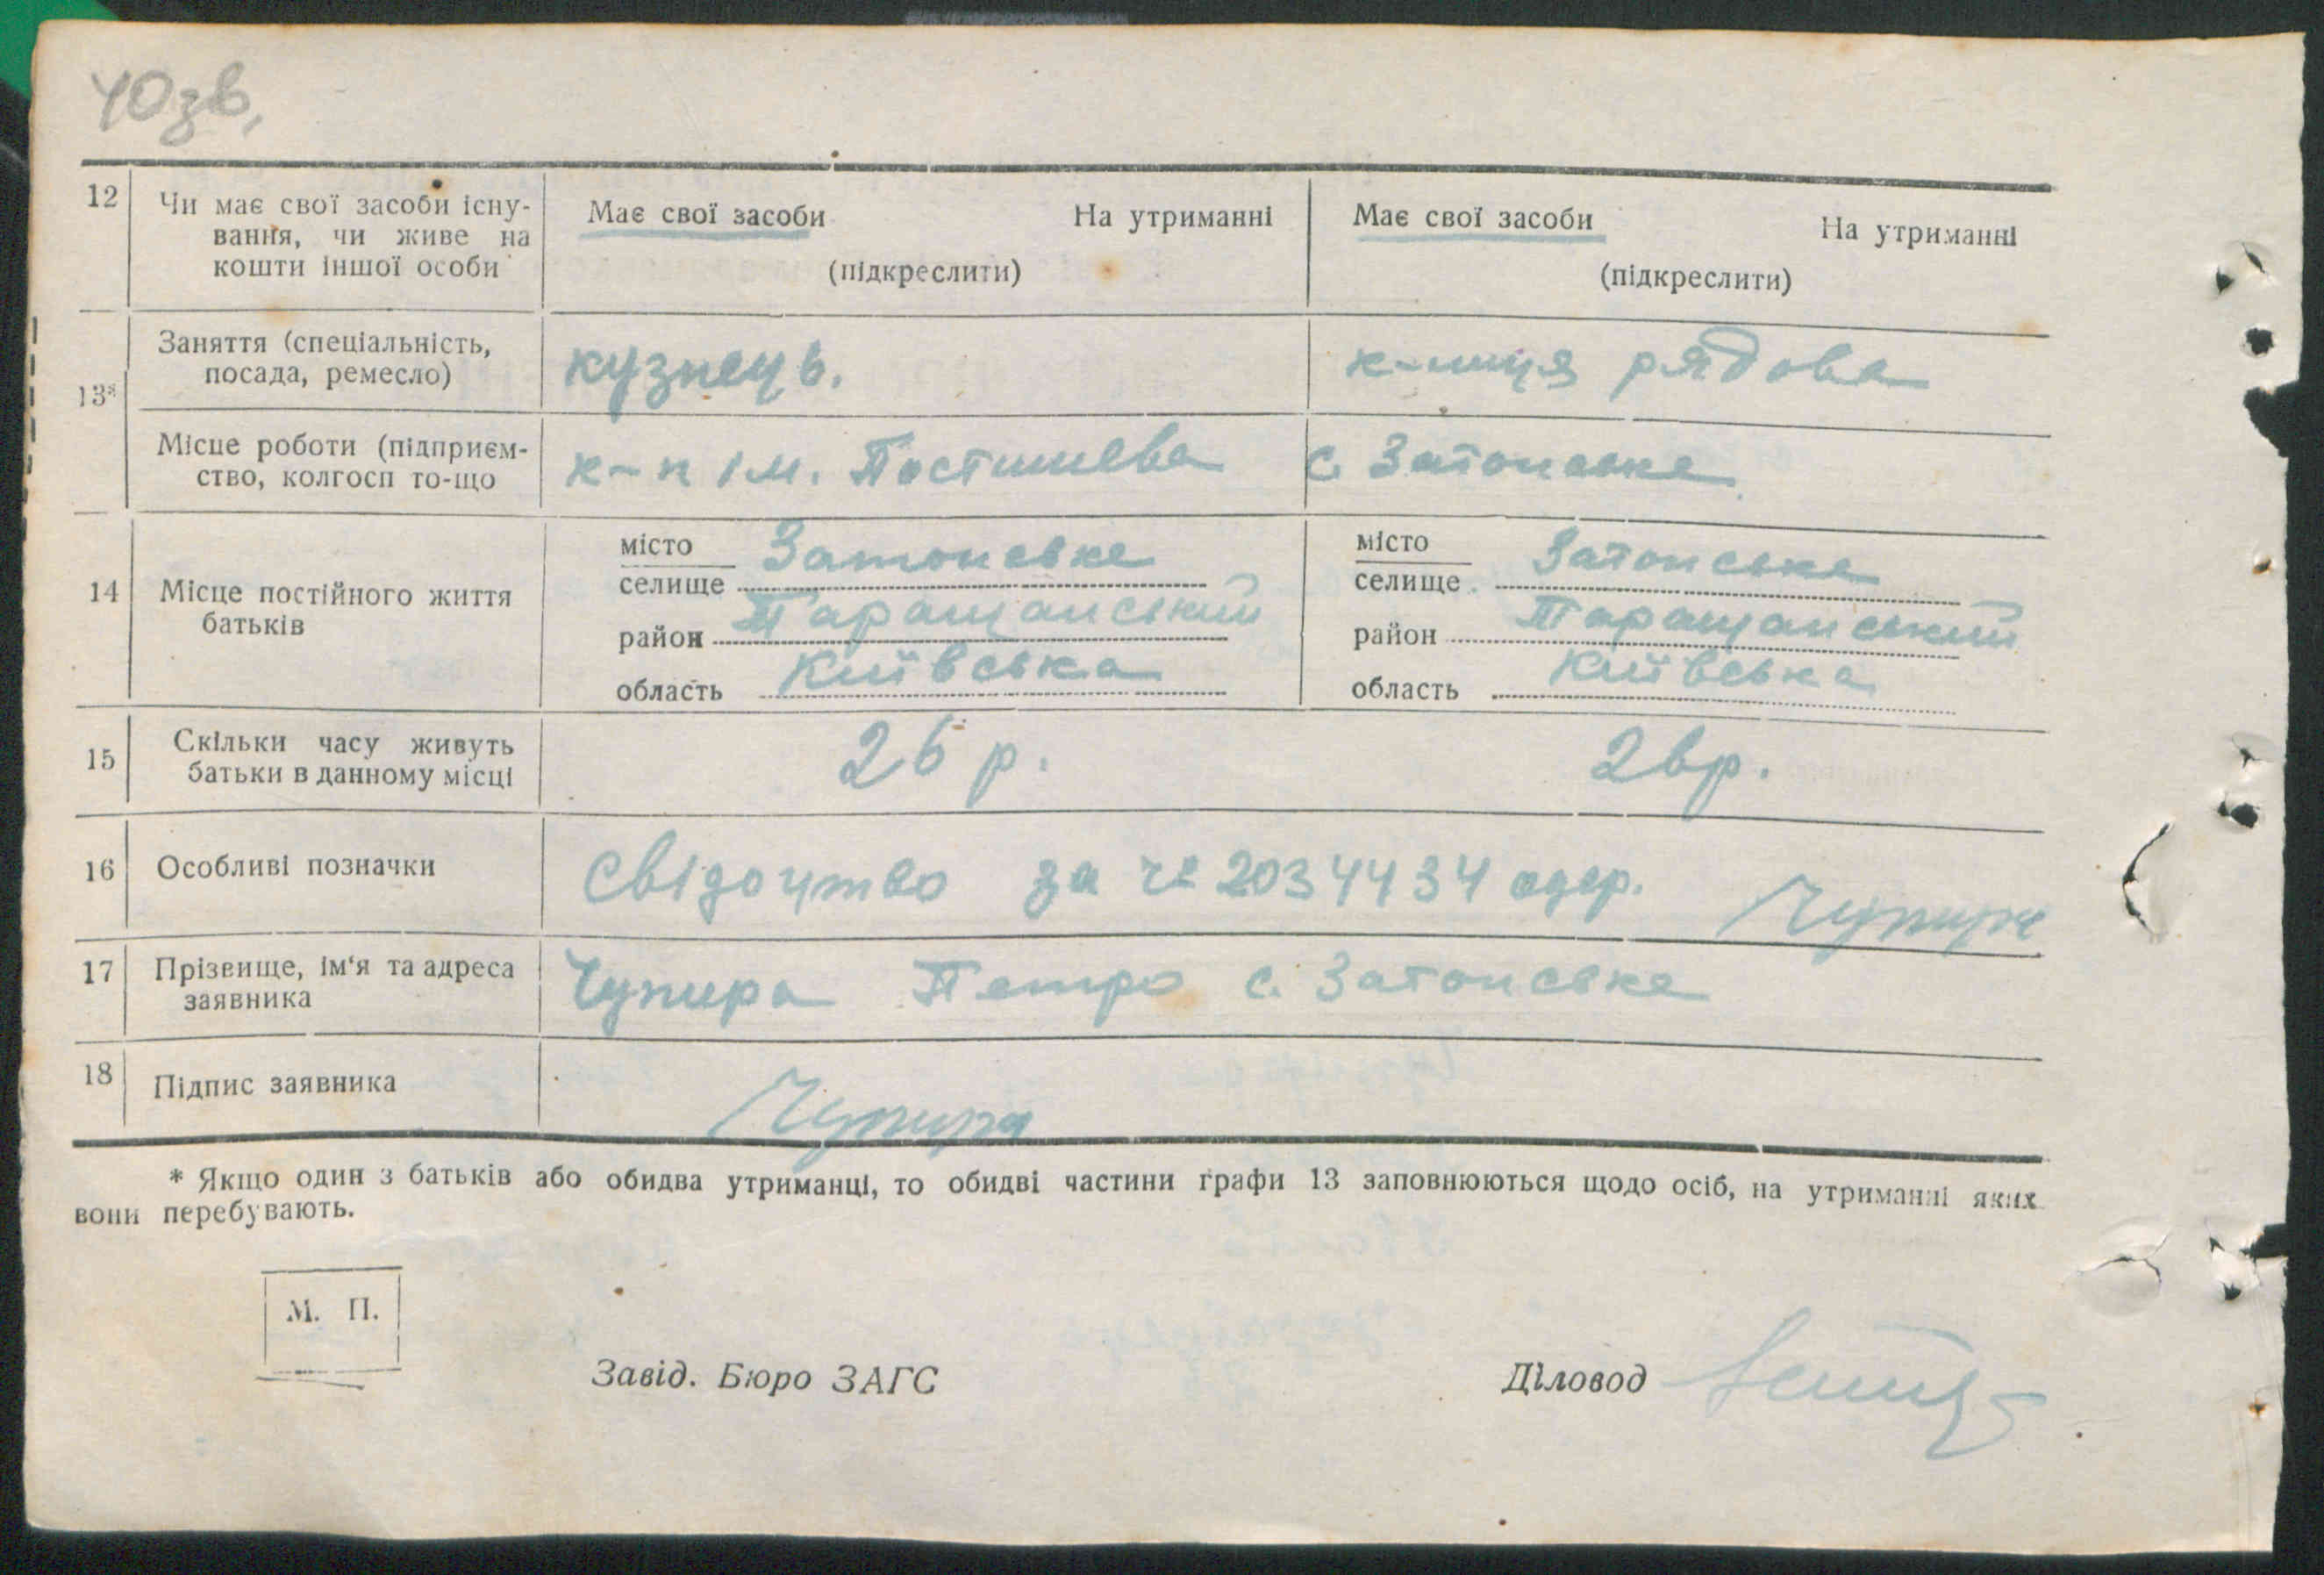 40зв,
12 Чи має свої засоби існу-
вання, чи живе на
кошти іншої особи
Має свої засоби На утриманні
(підкреслити)
Має свої засоби На утриманні
(підкреслити)
13* Заняття (спеціальність,
посада, ремесло)
кузнець.
к-ниця рядова
Місце роботи (підприєм-
ство, колгосп то-що
к-п ім. Постишева
с. Затонське
14 Місце постійного життя
батьків
місто
селище Затонське
район Таращанський
область Київська
місто
селище Затонське
район Таращанський
область Київська
15 Скільки часу живуть
батьки в данному місці
26 р.
26р.
16 Особливі позначки
Свідоцтво за № 2034434 одер. Чупира
17 Прізвище, ім'я та адреса
заявника
Чупира Петро с. Затонське
18 Підпис заявника
Чупира
* Якщо один з батьків або обидва утриманці, то обидві частини графи 13 заповнюються щодо осіб, на утриманні яких
вони перебувають.
М. П.
Завід. Бюро ЗАГС
Діловод